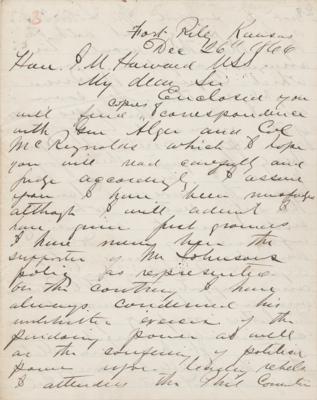 Fort Riley Kansas
Dec 26" 1866
Hon. J M Howard USS.
My dear Sir
Enclosed you
will find copies of correspondence
with Gen Alger and Col
McReynolds which I hope
you will read carefully and
judge accordingly I assure
you I have been misjudged
although I will admit I
have given just grounds
I have never been the
supporter of Mr Johnsons
policy as represented
on the contrary I have
always condemned his
exercise of the
pardoning power as well
as the confering of political
power upon leading rebels
I attended the Phil Convention